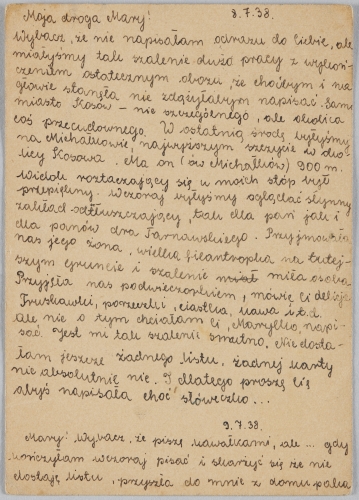 Moja droga Mary! 8.7.38.
Wybacz, że nie napisałam odrazu do Ciebie, ale
miałyśmy tak szalenie dużo pracy z wykoń-
czeniem ostatecznym obozu, że choćbym i na
głowie stanęła nie zdążyłabym napisać. Samo
miasto Kosów – nie szczególnego, ale okolica
coś przecudownego. W ostatnią środę byłyśmy
na Michałkowie, najwyższym szczycie w oko-
licy Kosowa. Ma on (ów Michałków) 900 m.
Widok roztaczający się u moich stóp był
przepiękny. Wczoraj byłyśmy oglądać słynny
zakład odtłuszczający, tak dla pań jak i
dla panów dra Tarnawskiego. Przyjmowała
nas jego żona, wielka filantropka na tutej-
szym gruncie i szalenie miła osoba.
Przyjęła nas podwieczorkiem, mówię Ci delicje.
Truskawki, porzeczki, ciastka, kawa i t.d.
Ale nie o tym chciałam Ci, Marylko, napi-
sać. Jest mi tak szalenie smutno. Nie dosta-
łam jeszcze żadnego listu, żadnej karty
nic absolutnie nic. I dlatego proszę Cię
abyś napisała choć słóweczko...
9.7.38.
Mary! Wybacz, że piszę kawałkami, ale ... gdy
kończyłam wczoraj pisać i skarżyć się że nie
dostaję listu, przyszła do mnie z domu paka